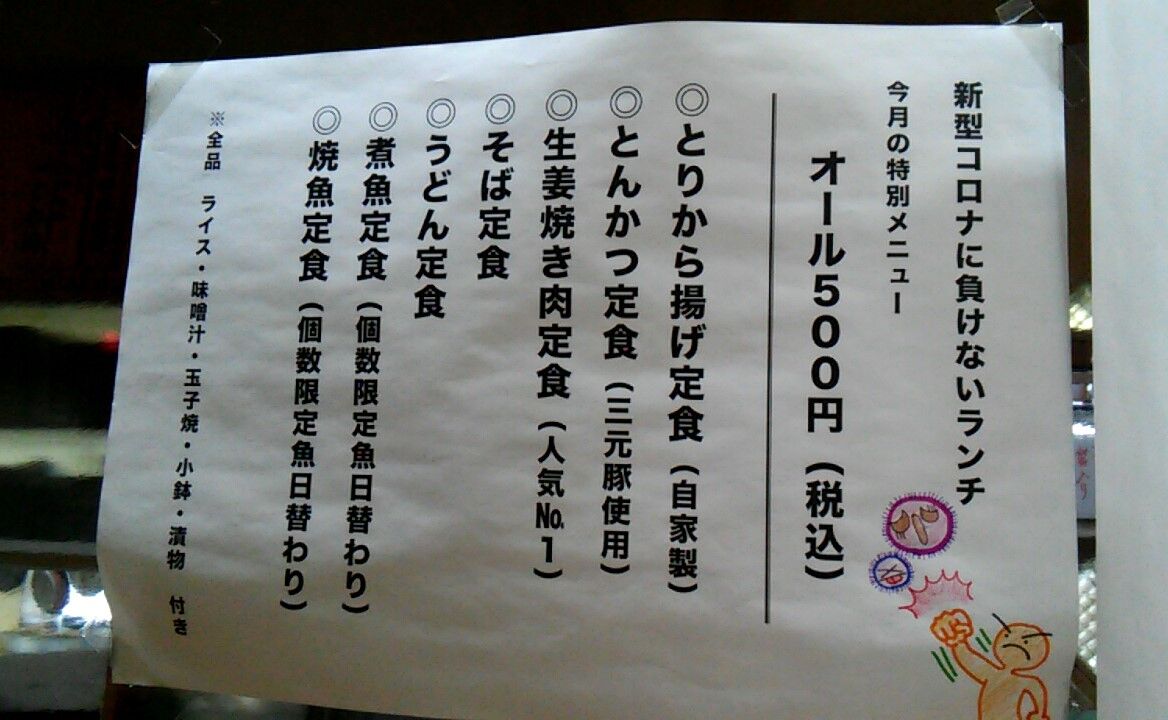 新型コロナに負けないランチ
今月の特別メニュー
オール500円（税込）
◎とりから揚げ定食（自家製）
◎とんかつ定食（三元豚使用）
◎生姜焼き肉定食（人気№1）
◎そば定食
◎うどん定食
◎煮魚定食（個数限定魚日替わり）
◎焼魚定食（個数限定魚日替わり）
※全品　ライス・味噌汁・玉子焼・小鉢・漬物　付き